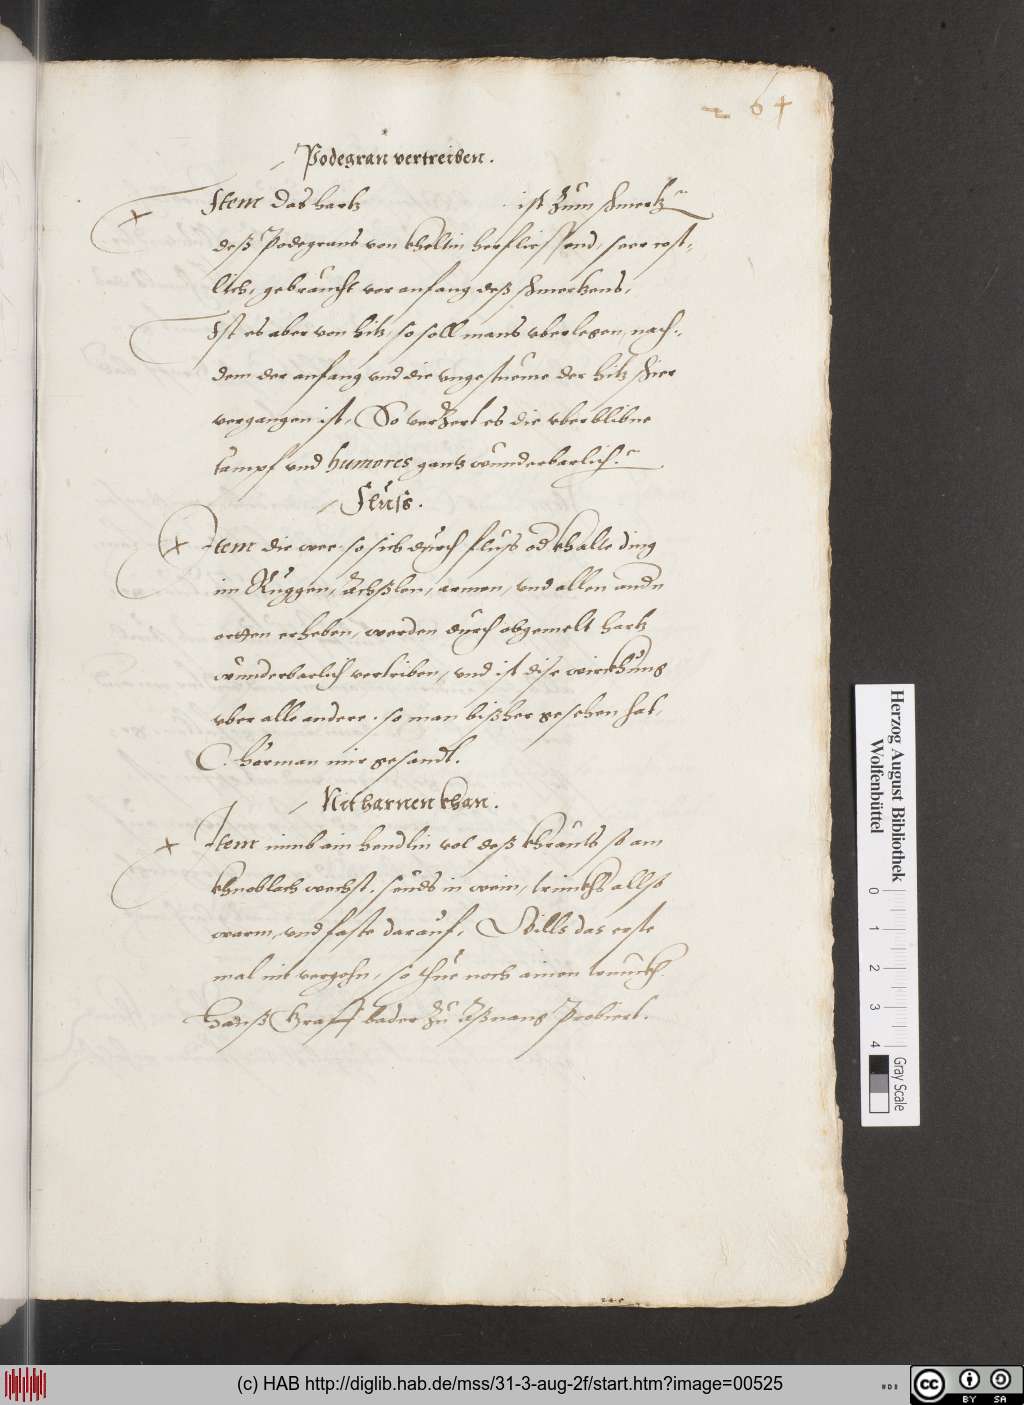 264
Podegran vertreiben.
Item das hartz ist zum schmertz
deß Podegrans von kheltin herfliessend, seer cost-
lich, gebraucht vor anfang deß schmertzens,
Ist es aber von hitz, so soll mans vberlegen, nach-
dem der anfang vnd die vngestueme der hitz schier
vergangen ist, So verzert es die vberblibne
tampf vnd humores gantz wunderbarlich.
Fluss.
Item die wee so sich durch fluss od khalte ding
im Ruggen, Achßlen, armen, vnd allen andn
orten erheben, werden durch obgemelt hartz
wunderbarlich vertriben, vnd ist dise wirckhung
vber alle andere, so man bißher gesehen hat,
C. Hörman mir gesandt.
Nit harnen khan.
Item nimb ain hendlin vol deß khrauts so am
khnoblach wechst, seuds in wein, trinckhs allso
warm, vnd faste darauf, Wills das erste
mal nit vergehn, so thue noch ainen trunckh.
Hanß Graff bader zu Probiert.
Herzog August Bibliothek
Wolfenbüttel
0 1 2 3 4
Gray Scale
(c) HAB http://diglib.hab.de/mss/31-3-aug-2f/start.htm?image=00525
cc BY SA